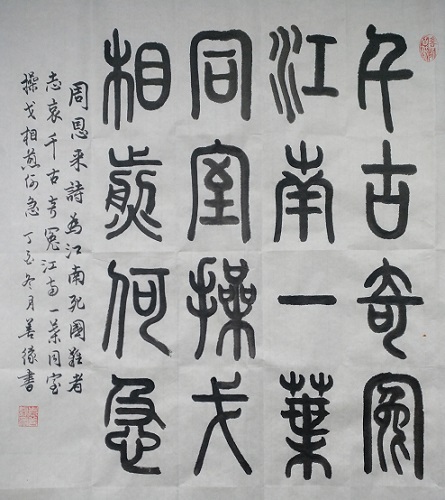 千古奇冤
江南一葉
同室操戈
相煎何急
周恩来詩為江南死國難者
志哀千古奇冤江南一葉同室
操戈相煎何急丁亥冬月善缘書